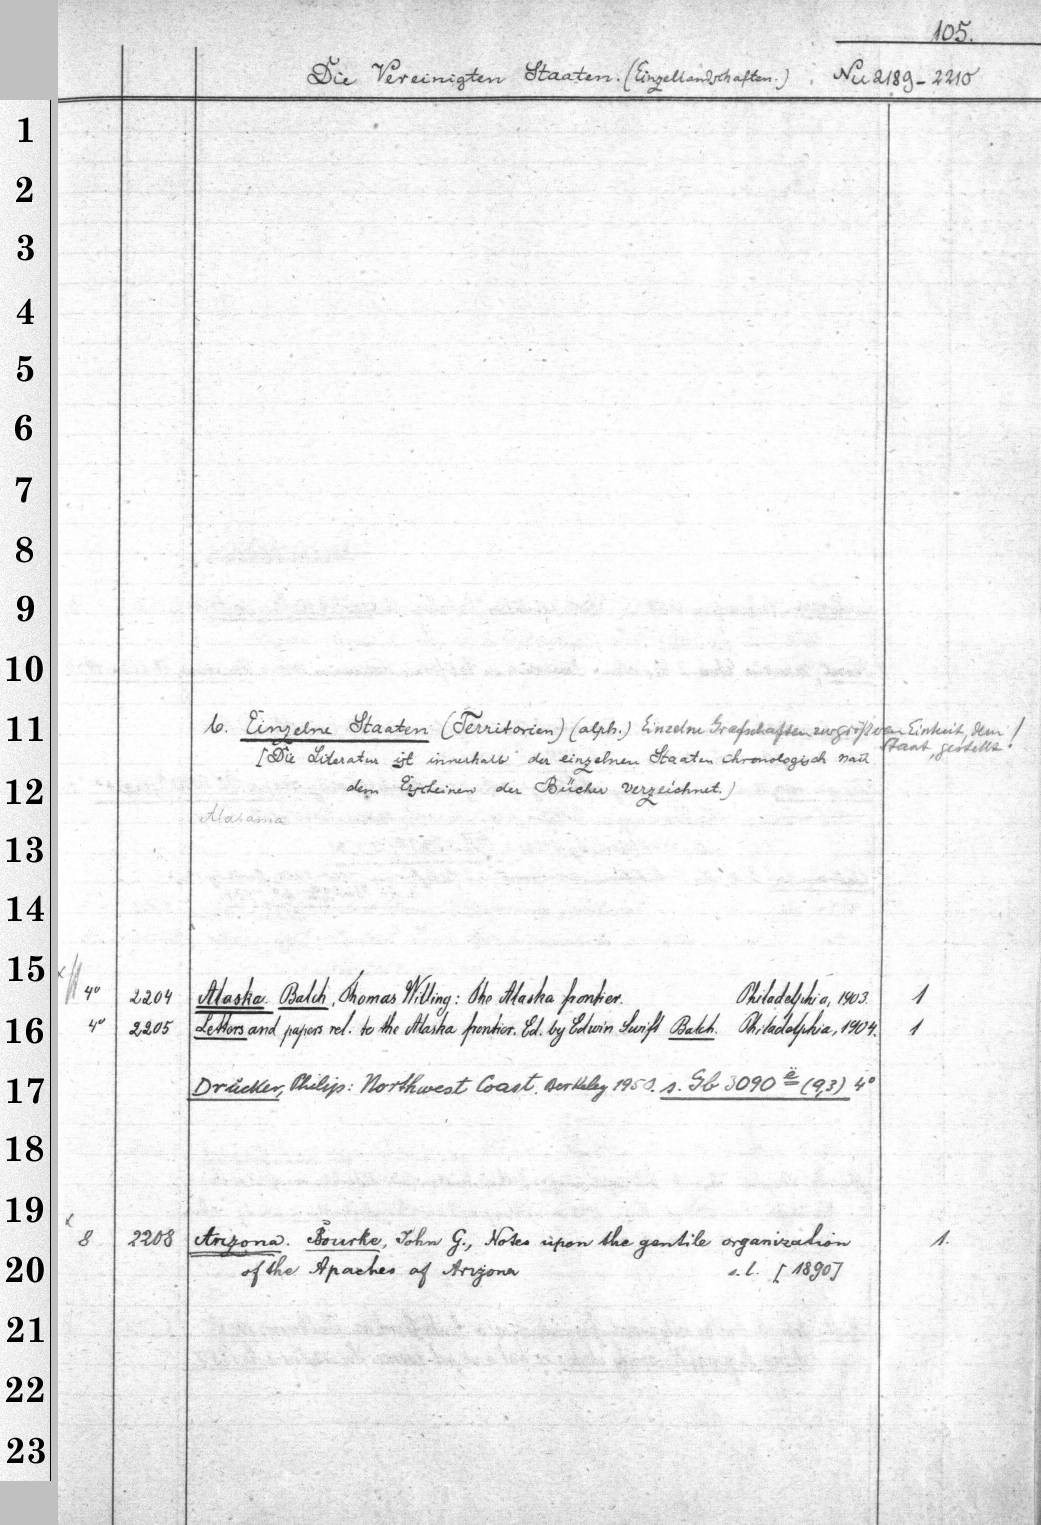 105.
Die Vereinigten Staaten. (Einzellandschaften.) Nu 2189-2210
1
2
3
4
5
6
7
8
9
10
11
b. Einzelne Staaten (Territorien) (alph.) Einzelne Grafschaften zur größeren Einheit, dem Staat, gestellt!
[Die Literatur ist innerhalb der einzelnen Staaten chronologisch nach
12
dem Erscheinen der Bücher verzeichnet.)
Alabama
13
14
15
4° 2204 Alaska. Balch, Thomas Willing: The Alaska frontier. Philadelphia, 1903. 1
16
4° 2205 Letters and papers rel. to the Alaska frontier. Ed. by Edwin Swift Balch. Philadelphia, 1904. 1
17
Drucker, Philip: Northwest Coast. Berkeley 1950. s. Gb 3090 ë (9,3) 4°
18
19
x
8 2208 Arizona. Bourke, John G., Notes upon the gentile organization 1.
20
of the Apaches of Arizona s.l. [1890]
21
22
23